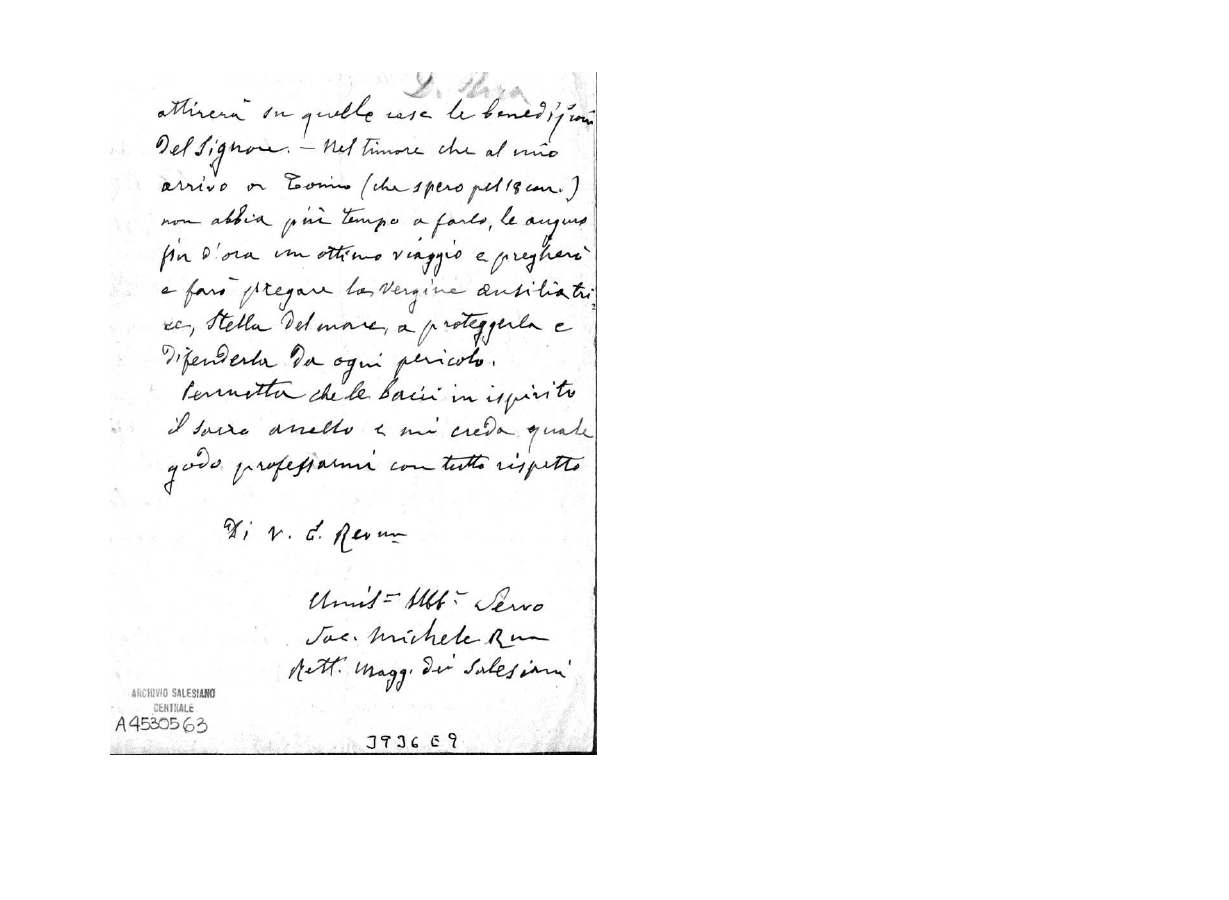 D. Rua
attirerà su quelle case le benedizioni
del Signore. — Nel timore che al mio
arrivo a Torino (che spero pel 18 corr.)
non abbia più tempo a farlo, le auguro
fin d'ora un ottimo viaggio e pregherò
e farò pregare la Vergine ausiliatri-
ce, Stella del mare, a proteggerla e
difenderla da ogni pericolo.
Permetta che le baci in ispirito
il sacro anello e mi creda quale
godo professarmi con tutto rispetto
Di V. E. Revma
Umilo Obbo Servo
Sac. Michele Rua
Rett. Magg. dei Salesiani
ARCHIVIO SALESIANO
CENTRALE
A4530563
3936 E 9